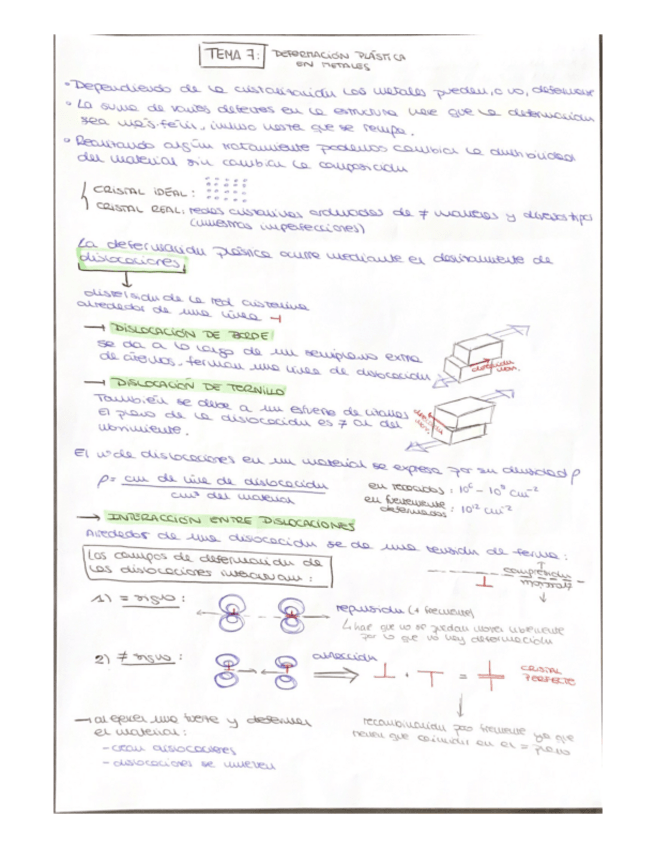 TEMA 7: DEFORMACIÓN PLÁSTICA
EN METALES
• Dependiendo de la cristalización los metales pueden, o no, deformarse
• La suma de varios defectos en la estructura hace que la deformación
sea más fácil, incluso hasta que se rompa.
• Realizando algún tratamiento podemos cambiar la ductilidad
del material sin cambiar la composición
CRISTAL IDEAL:
CRISTAL REAL: redes cristalinas ordenadas de ≠ maneras y diversos tipos
(muestras imperfecciones)
La deformación plástica ocurre mediante el deslizamiento de
dislocaciones
distorsión de la red cristalina
alrededor de una línea ⊣
→ DISLOCACIÓN DE BORDE:
se da a lo largo de un semiplano extra
de átomos, forman una línea de dislocación
dirección mov.
→ DISLOCACIÓN DE TORNILLO
También se debe a un esfuerzo de
El plano de la dislocación es ≠ al del
movimiento.
dirección mov.
El nº de dislocaciones en un material se expresa por su densidad ρ
ρ = cm de línea de dislocación
cm³ del material
en recocidos: 10⁶ - 10⁸ cm⁻²
en fuertemente
deformados: 10¹² cm⁻²
→ INTERACCIÓN ENTRE DISLOCACIONES
Alrededor de una dislocación se da una tensión de forma:
Los campos de deformación de
las dislocaciones interaccionan:
compresión
⊥
1) = signo:
repulsión (+ frecuente)
↳ hace que no se puedan mover libremente
por lo que no hay deformación
2) ≠ signo:
atracción
⊥ + ⊤ =
CRISTAL
PERFECTO
→ al ejercer una fuerza y deformar
el material:
- crean dislocaciones
- dislocaciones se mueven
recombinación poco frecuente ya que
tienen que coincidir en el = plano